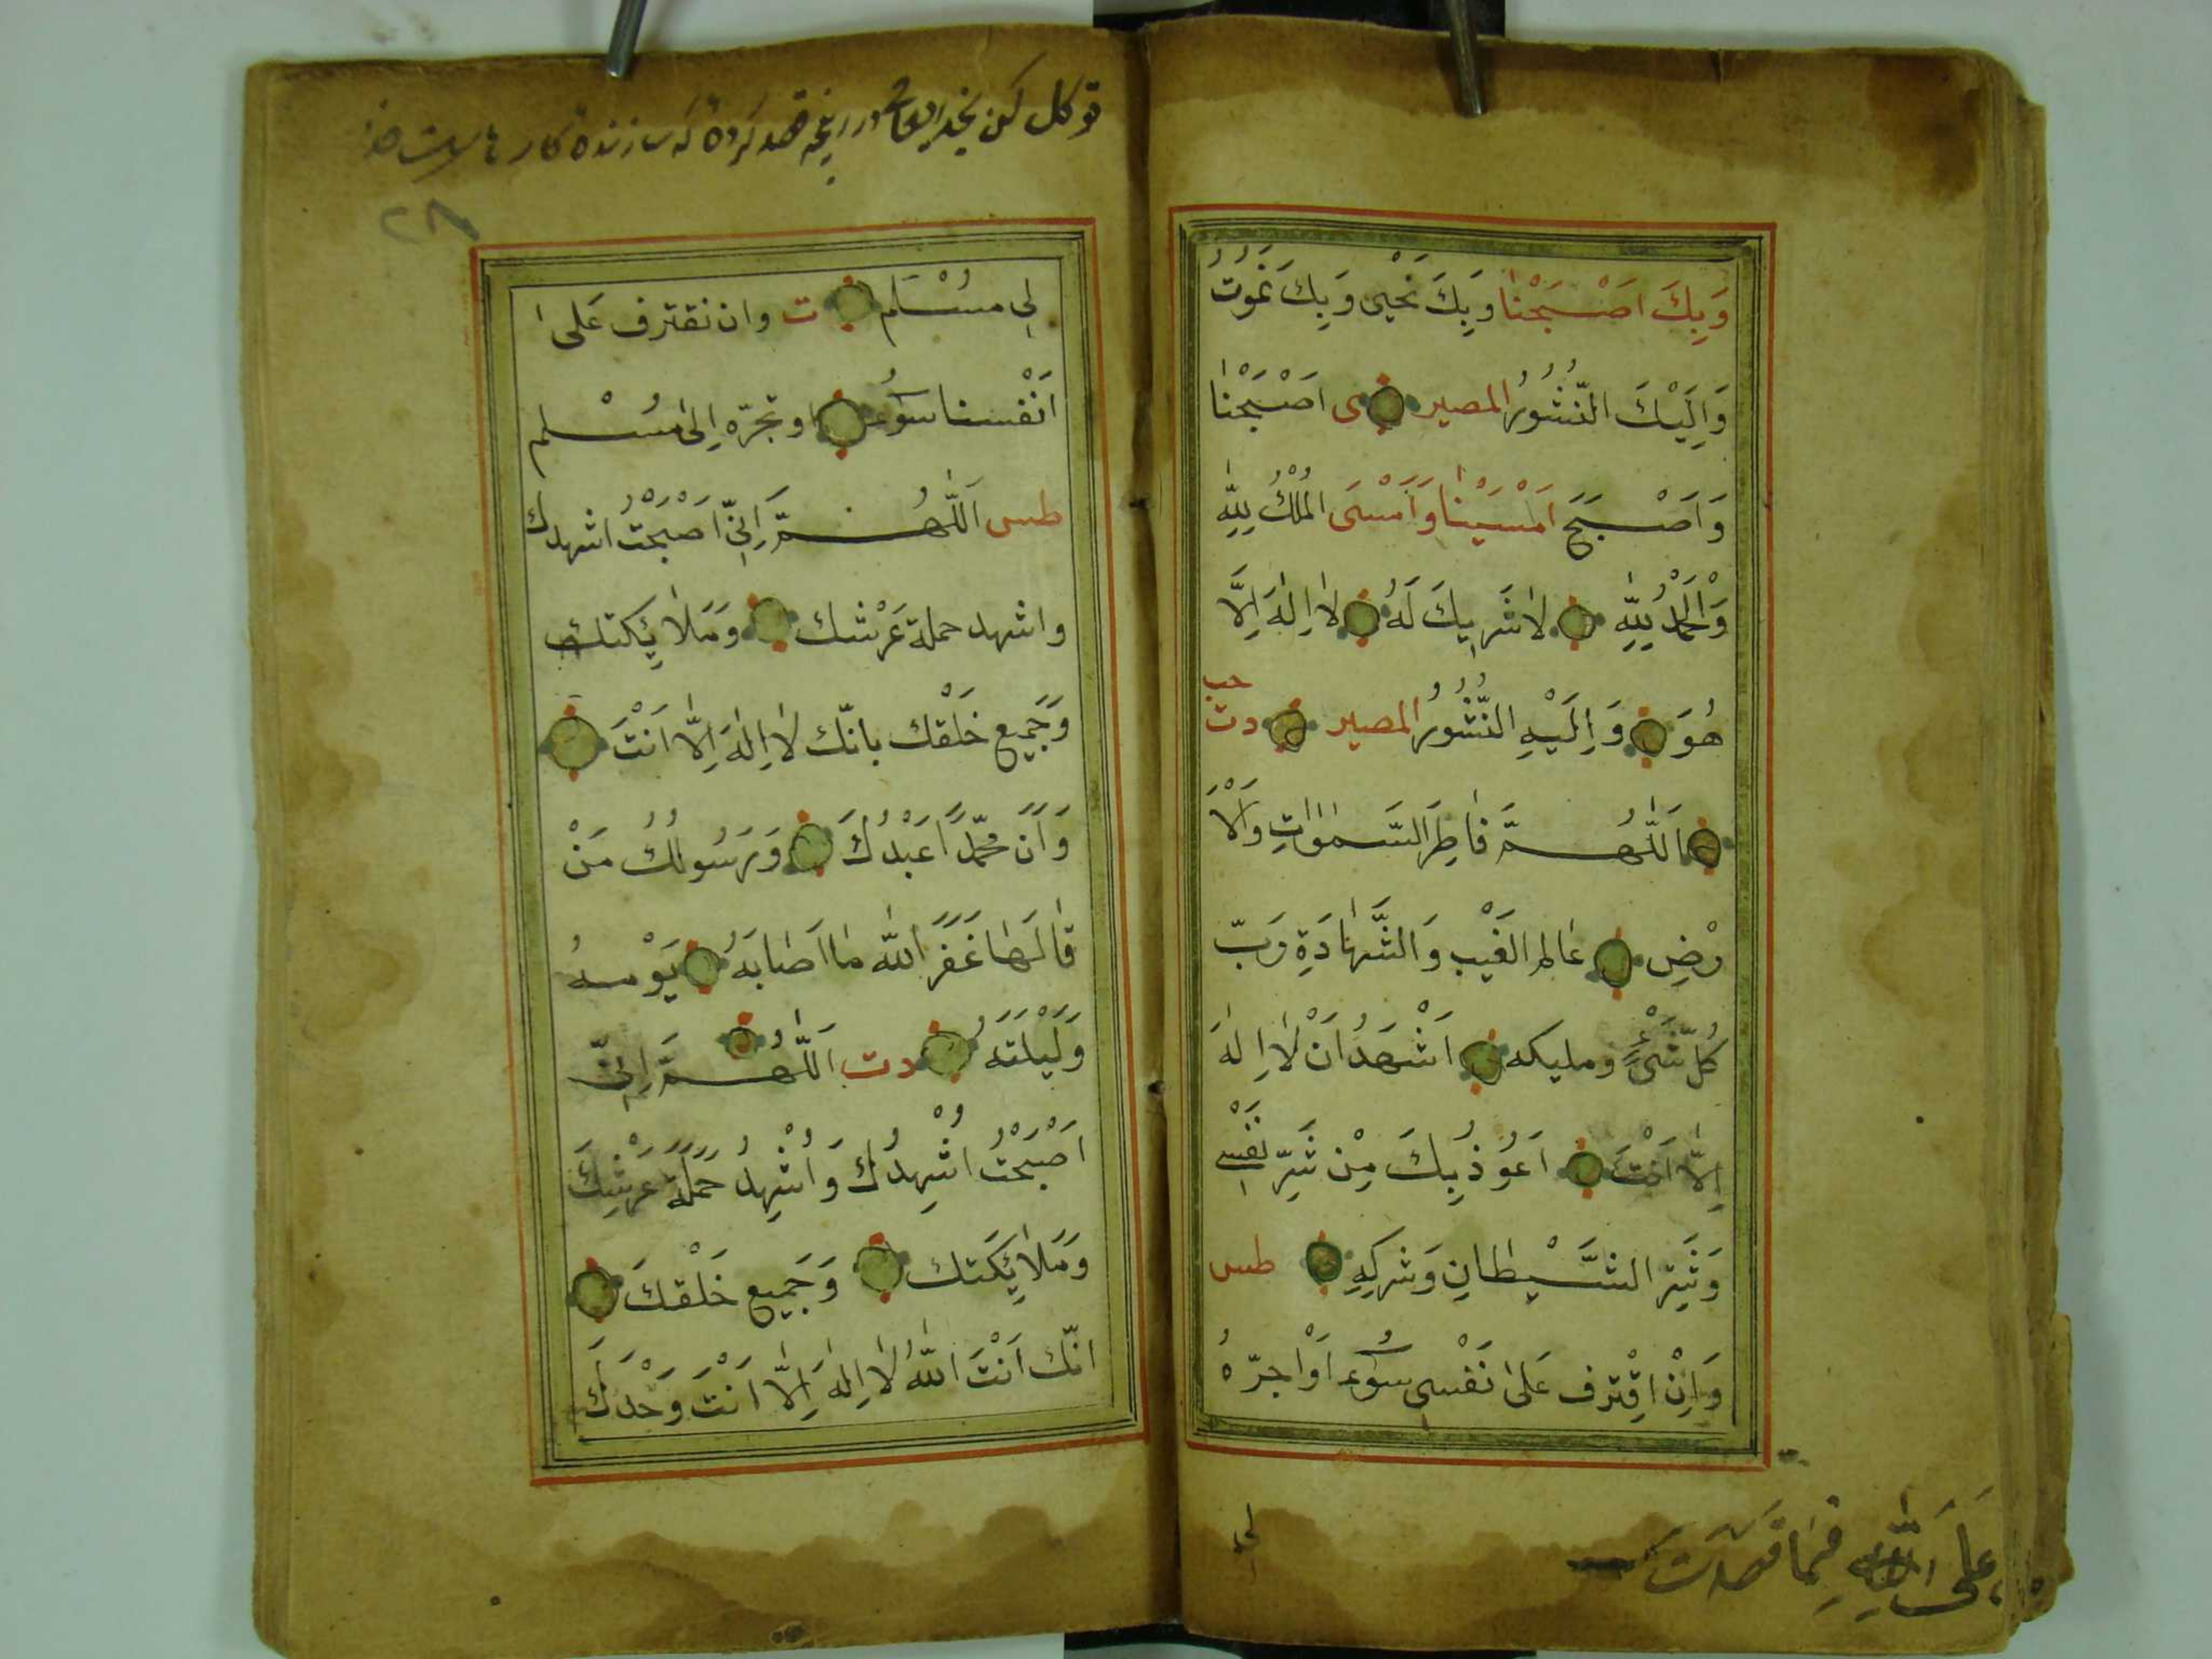 وَبِكَ اَصْبَحْنَا وَبِكَ نَحْيٰى وَبِكَ نَمُوتُ
وَاِلَيْكَ النُّشُورُ المصير ى اَصْبَحْنَا
وَاَصْبَحَ اَمْسَيْنَا وَاَمْسَى الْمُلْكُ لِلّٰهِ
وَالْحَمْدُ لِلّٰهِ لَا شَرِيكَ لَهُ لَا اِلٰهَ اِلَّا
هُوَ وَاِلَيْهِ النُّشُورُ المصير دت حب
اَللّٰهُمَّ فَاطِرَ السَّمٰوَاتِ وَالْاَ
رْضِ عَالِمَ الغَيْبِ وَالشَّهَادَةِ رَبَّ
كُلِّ شَيْءٍ ومليكه اَشْهَدُ اَنْ لَا اِلٰهَ
اِلَّا اَنْتَ اَعُوذُ بِكَ مِنْ شَرِّ نَفْسِي
وَشَرِّ الشَّيْطَانِ وَشركِهِ طس
وَاِنْ اقْترف عَلٰى نَفْسِي سُوءً اَوْ اجرّهُ
لى
عَلَى اللّٰهِ فِيمَا قَصَدْتَ
توكل كن در انچه قصد كرده كه سازنده كارهاست خدا
٢٨
لى مُسْلم ت وان نقترف عَلى ا
اَنْفسنا سُوء او نجرّه اِلى مُسْلم
طس اَللّٰهُمَّ اِنِّي اَصْبَحْتُ اشهدك
واشهد حملة عَرْشك وَمَلَائِكتك
وَجَمِيع خَلْقك بانّك لَا اِلٰهَ اِلَّا اَنْتَ
وَاَنَّ مُحَمَّدًا عَبْدُكَ وَرَسُولُكَ مَنْ
قَالَهَا غَفَرَ اللّٰه مَا اَصَابَهُ يَوْمه
وَلَيْلَتَهُ دت اَللّٰهُمَّ اِنِّي
اَصْبَحْتُ اُشْهِدُكَ وَاُشْهِدُ حَمَلَةَ عَرْشِكَ
وَمَلَائِكَتك وَجَمِيع خَلْقكَ
انّك اَنْتَ اللّٰهُ لَا اِلٰهَ اِلَّا اَنْتَ وَحْدَكَ